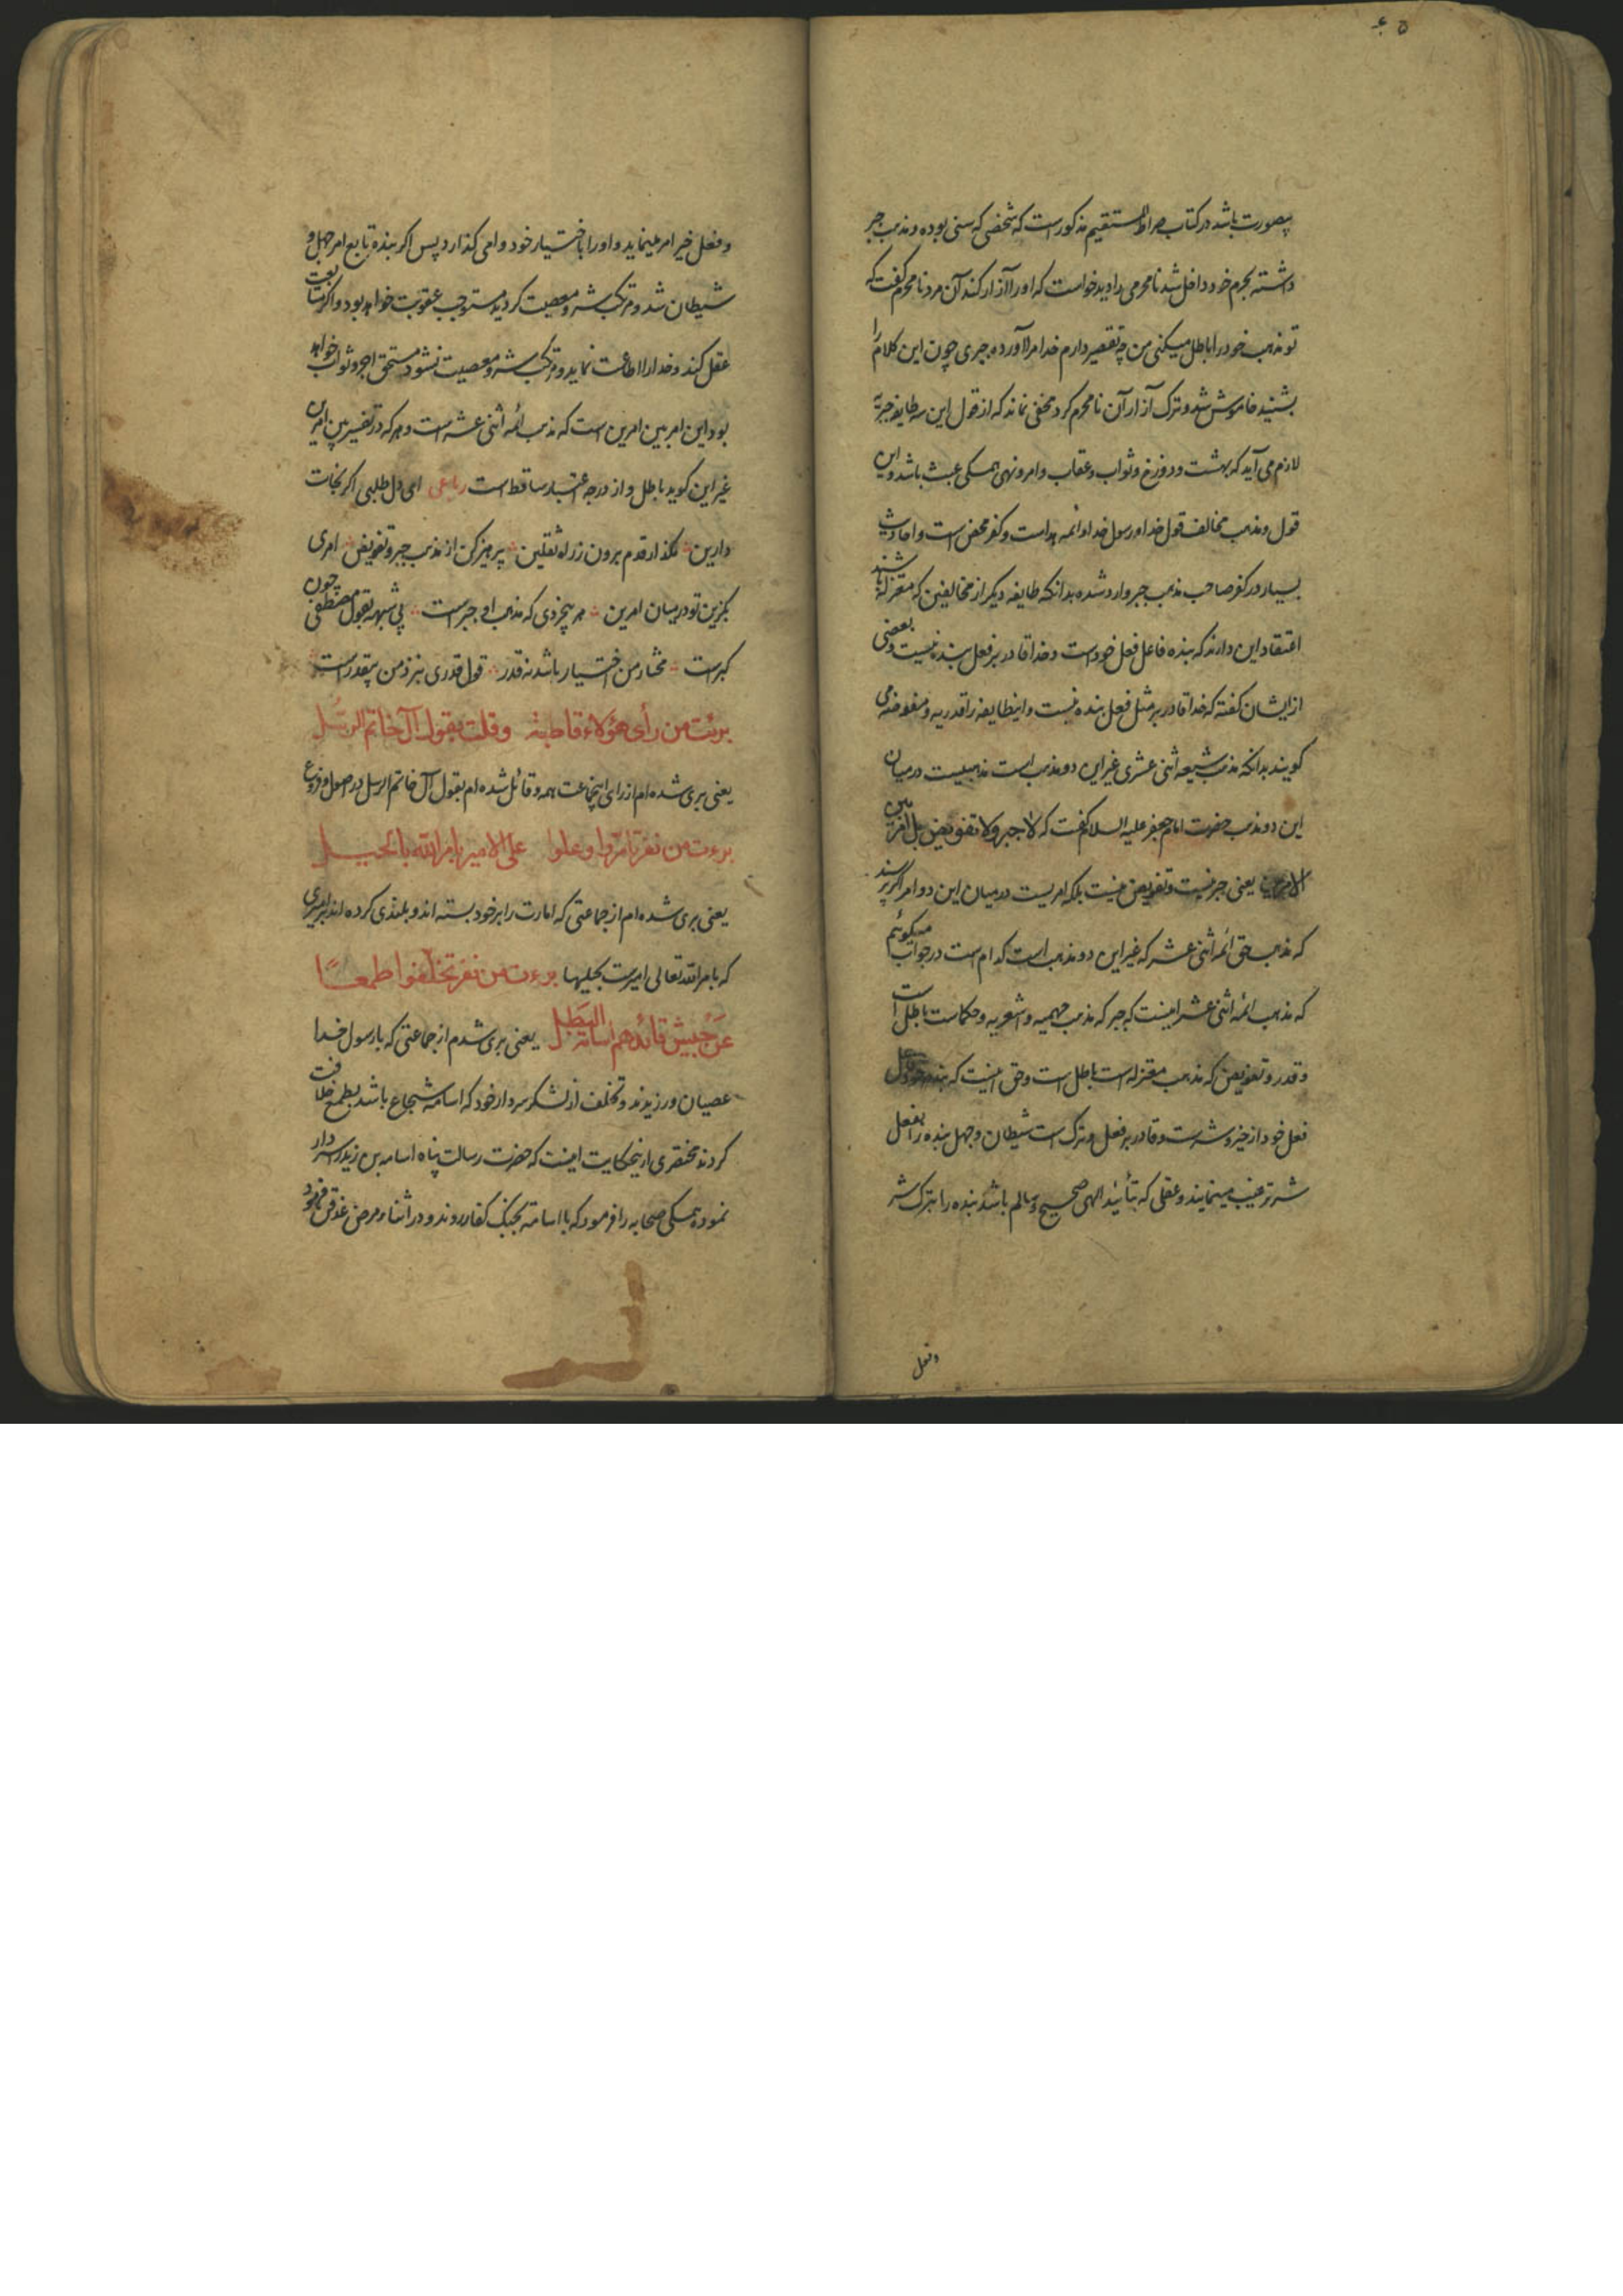 ۵ ع
بصورت باشد در کتاب صراط المستقیم مذکور است که شخصی که سنی بوده و مذهب جبر
داشته بحرم خود داخل شد نامحرمی را دید خواست که او را آزار کند آن مرد نامحرم گفت که
تو مذهب خود را باطل میکنی من چه تقصیر دارم خدا مرا آورده جبری چون این کلام را
بشنید خاموش شد و ترک آزار آن نامحرم کرد مخفی نماند که از قول این سه طایفه جبریه
لازم می آید که بهشت و دوزخ و ثواب و عقاب و امر و نهی همکی عبث باشد و این
قول و مذهب مخالف قول خدا و رسول خدا و ائمه هداست و کفر محض است و احادیث
بسیار در کفر صاحب مذهب جبر وارد شده بدانکه طایفه دیکر از مخالفین که معتزله باشند
اعتقاد این دارند که بنده فاعل فعل خود است و خدا قادر بر فعل بنده نیست و بعضی
از ایشان کفته که خدا قادر بر مثل فعل بنده نیست و اینطایفه را قدریه و مفوضه می
کویند بدانکه مذهب شیعه اثنی عشری غیر این دو مذهب است مذهبیست در میان
این دو مذهب حضرت امام جعفر علیه السلام کفت که لا جبر ولا تفویض بل امر بین
الامرین یعنی جبر نیست و تفویض نیست بلکه امریست در میان این دو امر اکر پرسند
که مذهب حق ائمه اثنی عشر که غیر این دو مذهب است کدام است در جواب میکوئیم
که مذهب ائمه اثنی عشر اینست که جبر که مذهب جهمیه و اشعریه و حکماست باطل است
و قدر و تفویض که مذهب معتزله است باطل است و حق اینست که بنده خود فاعل
فعل خود از خیر و شر است و قادر بر فعل و ترک است شیطان و جهل بنده را بفعل
شر ترغیب مینمایند و عقلی که بتأئید الهی صحیح و سالم باشد بنده را بترک شر
وفعل
و فعل خیر امر مینماید و او را باختیار خود وامی کذارد پس اکر بنده تابع امر جهل و
شیطان شد و مرتکب شر و معصیت کردید مستوجب عقوبت خواهد بود و اکر متابعت
عقل کند و خدا را اطاعت نماید و مرتکب شر و معصیت نشود مستحق اجر و ثواب خواهد
بود این امر بین امرین است که مذهب ائمه اثنی عشر است و هر که در تفسیر بین امرین
غیر این کوید باطل و از درجه اعتبار ساقط است رباعی ای دل طلبی اکر نجات
دارین مکذار قدم برون ز راه ثقلین پرهیز کن از مذهب جبر و تفویض امری
بکزین تو در میان امرین هر بیخردی که مذهب او جبر است بی شبهه بقول مصطفی چون
کبر است مختار من اختیار باشد نه قدر قول قدری بنزد من بیقدر است
برئت من رأی هؤلاء قاطبة وقلت بقول آل خاتم الرسل
یعنی بری شده ام از رای اینجماعت همه و قائل شده ام بقول آل خاتم الرسل در اصول و فروع
برءت من نفر تأمروا وعلوا علی الامیر بامر الله بالحیل
یعنی بری شده ام از جماعتی که امارت را بر خود بسته اند و بلندی کرده اند بر امیری
که بامر الله تعالی امیرست بحیلها برءت من نفر تخلفوا طمعًا
عن جیش قائدهم اسامة البطل یعنی بری شدم از جماعتی که با رسول خدا
عصیان ورزیدند و تخلف از لشکر سردار خود که اسامه شجاع باشد بطمع خلافت
کردند مختصری از اینحکایت اینست که حضرت رسالت پناه اسامه بن زید را سردار
نموده همکی صحابه را فرمود که با اسامه بجنک کفار روند و در اثناء مرض غدقن فرمود